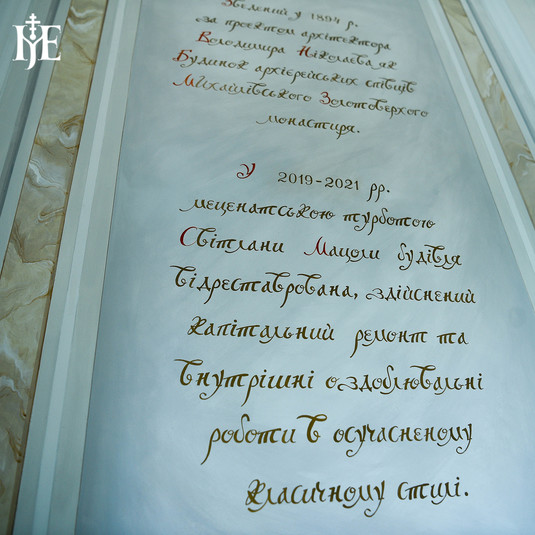 Зведений у 1894 р.
за проєктом архітектора
Володимира Ніколаєва як
Будинок архієрейських співців
Михайлівського Золотоверхого
монастиря.
У 2019-2021 рр.
меценатською турботою
Світлани Мацоли будівля
відреставрована, здійснений
капітальний ремонт та
внутрішні оздоблювальні
роботи в осучасненому
класичному стилі.